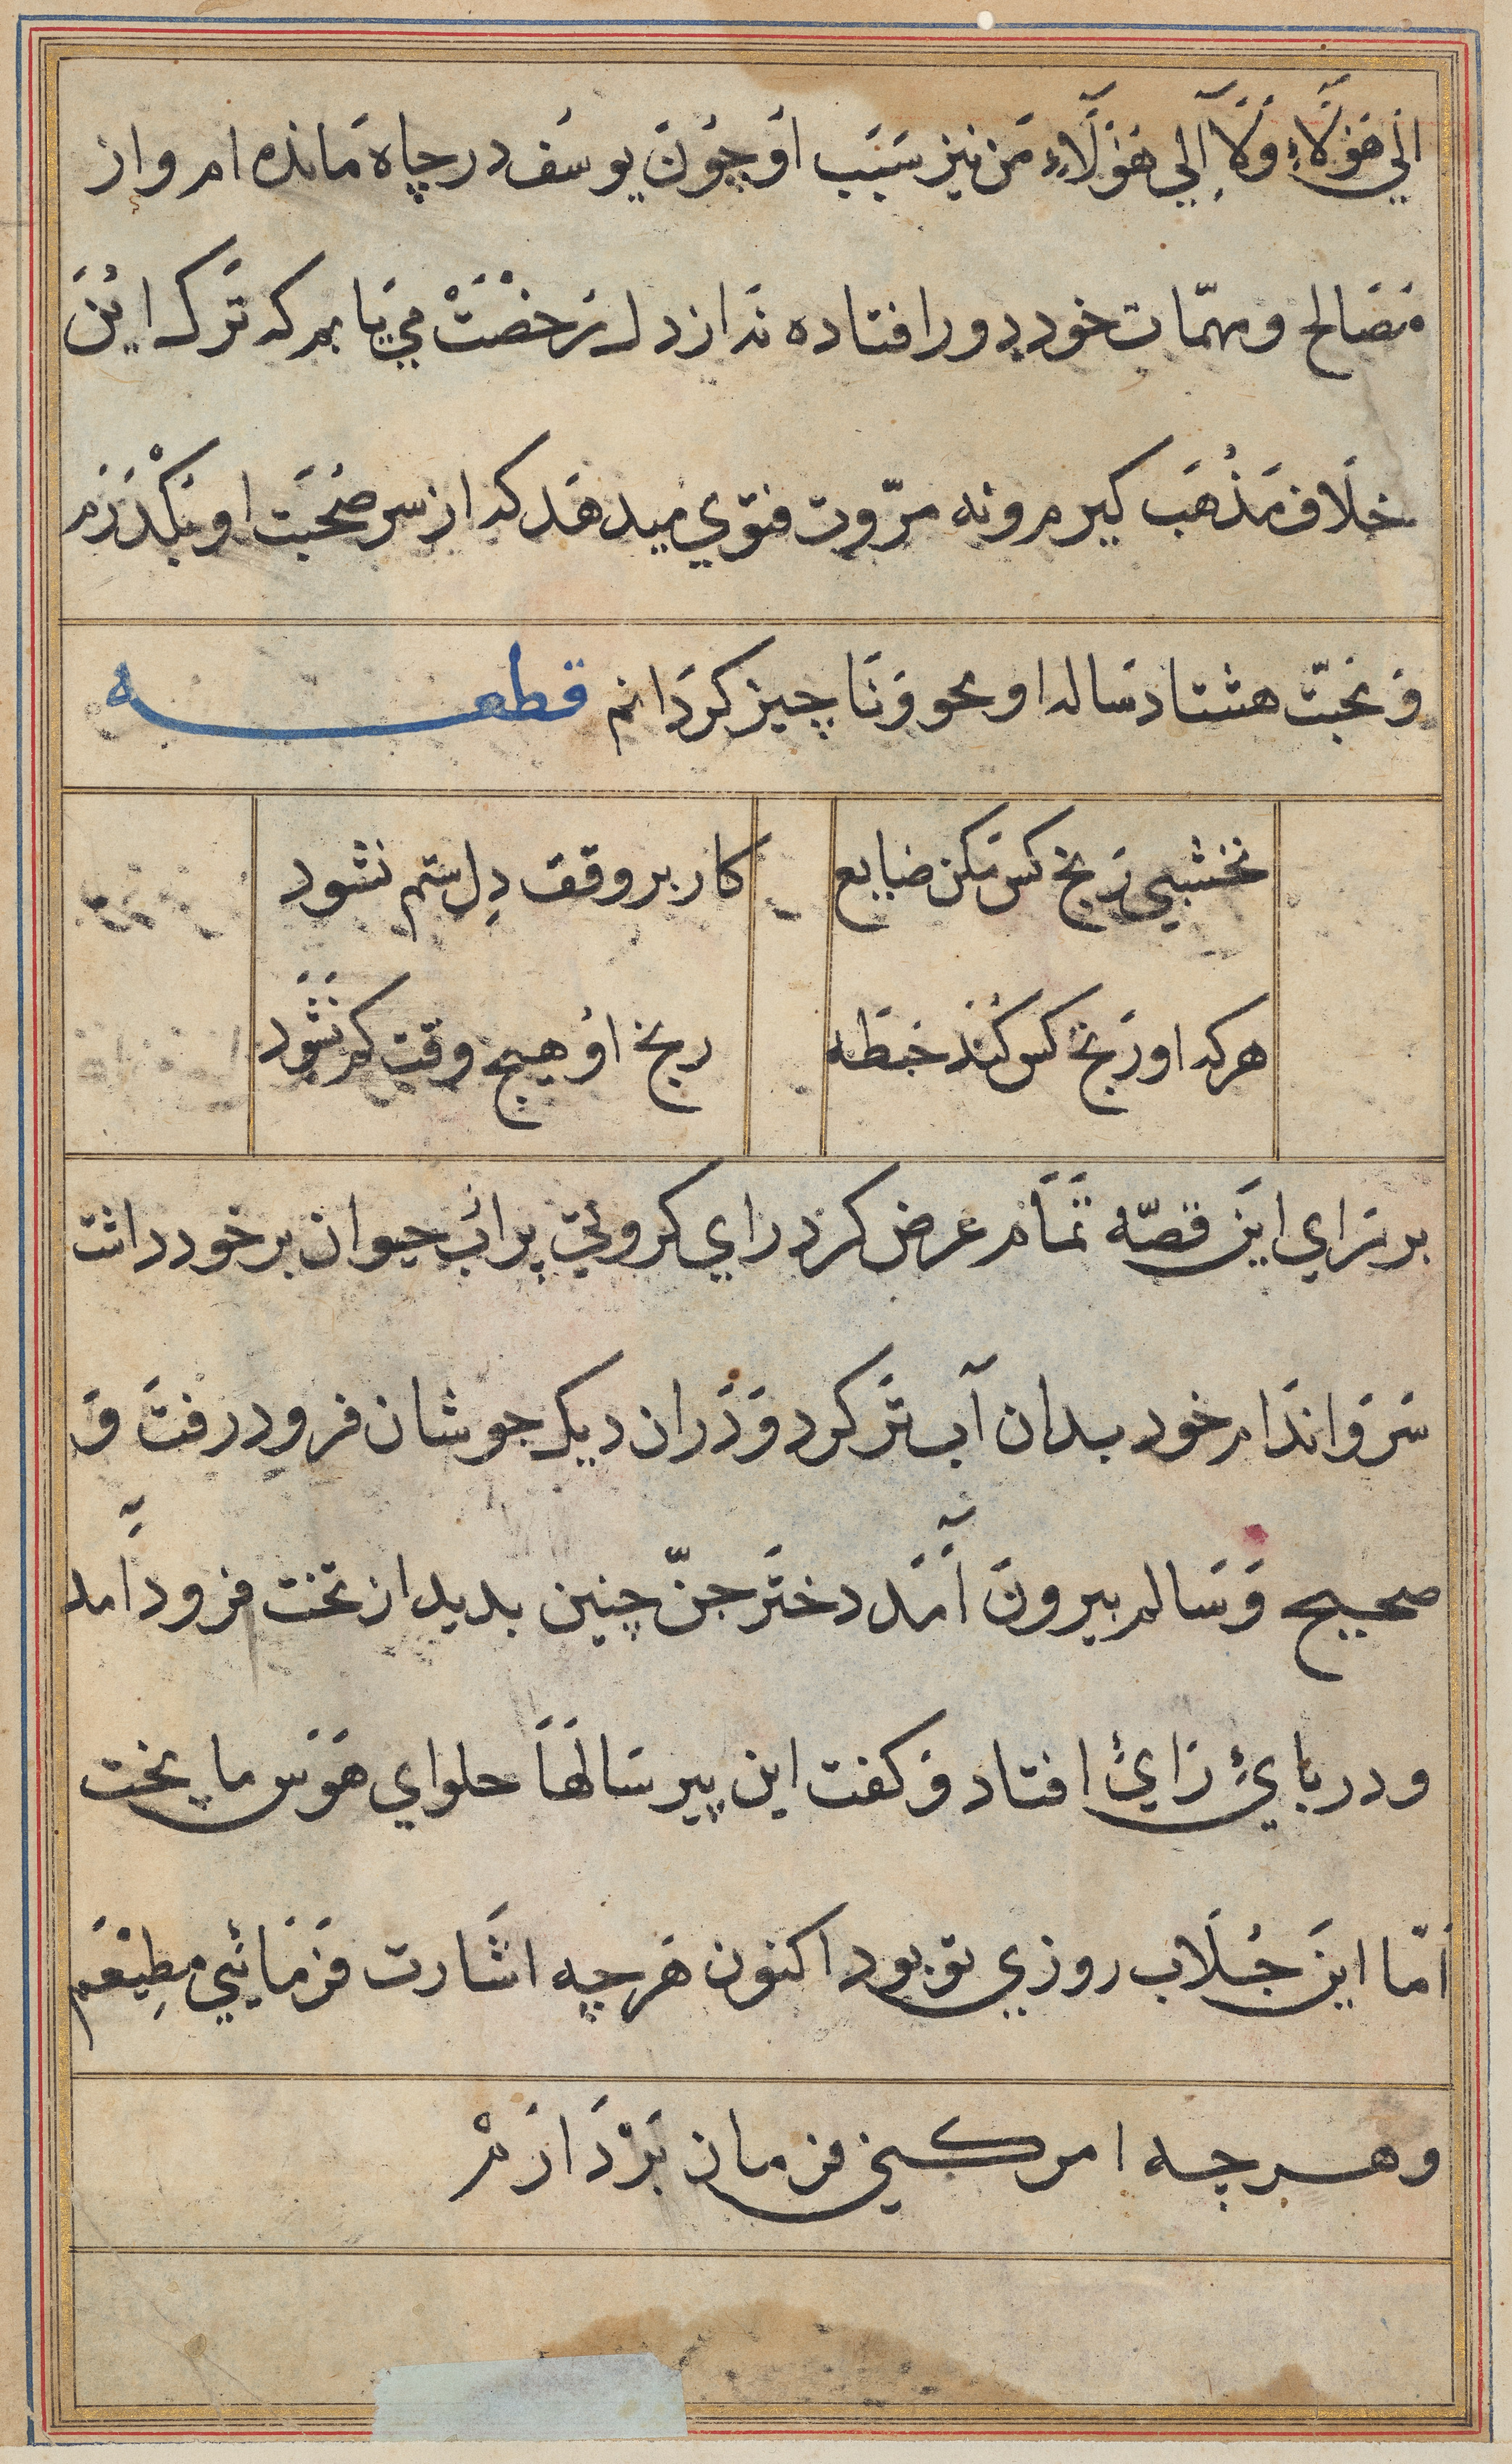 الي هؤلاء ولا الي هؤلاء من نيز سبب او چون يوسف در چاه مانده ام و از
مصالح و مهمّات خود دور افتاده نه از دل رخصت مي يابم كه ترك اين
خلاف مذهب كيرم و نه مرّوت فتوي ميدهد كه از سر صحبت او بكذرم
و محبّت هشتاد ساله او محو و ناچيز كردانم قطعه
نخشبي رنج كس مكن ضايع كار بر وفق دل ستم نشود
هر كه او رنج كس كند خبطه رنج او هيچ وقت كم نشود
بر راي اين قصّه تمام عرض كرد راي كروئي پر آب حيوان بر خود داشت
سر و اندام خود بدان آب تر كرد و در ان ديك جوشان فرود رفت و
صحيح و سالم بيرون آمد دختر جنّ چنين بديد از تخت فرود آمد
و در پاي راي افتاد و كفت اين پير سالها حلواي هوس ما پخت
امّا اين جلاب روزي تو بود اكنون هرچه اشارت فرمائي مطيعم
و هرچه امر كني فرمان بردارم